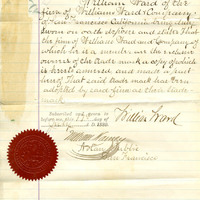 William Ward of the
firm of William Ward & Company,
of San Francisco California being duly
sworn on oath deposes and states that
the firm of William Ward and Company of
which he is a member are the
owners of the trade mark a copy of which
is hereto annexed and made a part
hereof that said trade mark has been
adopted by said firm as their trade
mark
William Ward
Subscribed and sworn to
before me this
Notary Public
San Francisco